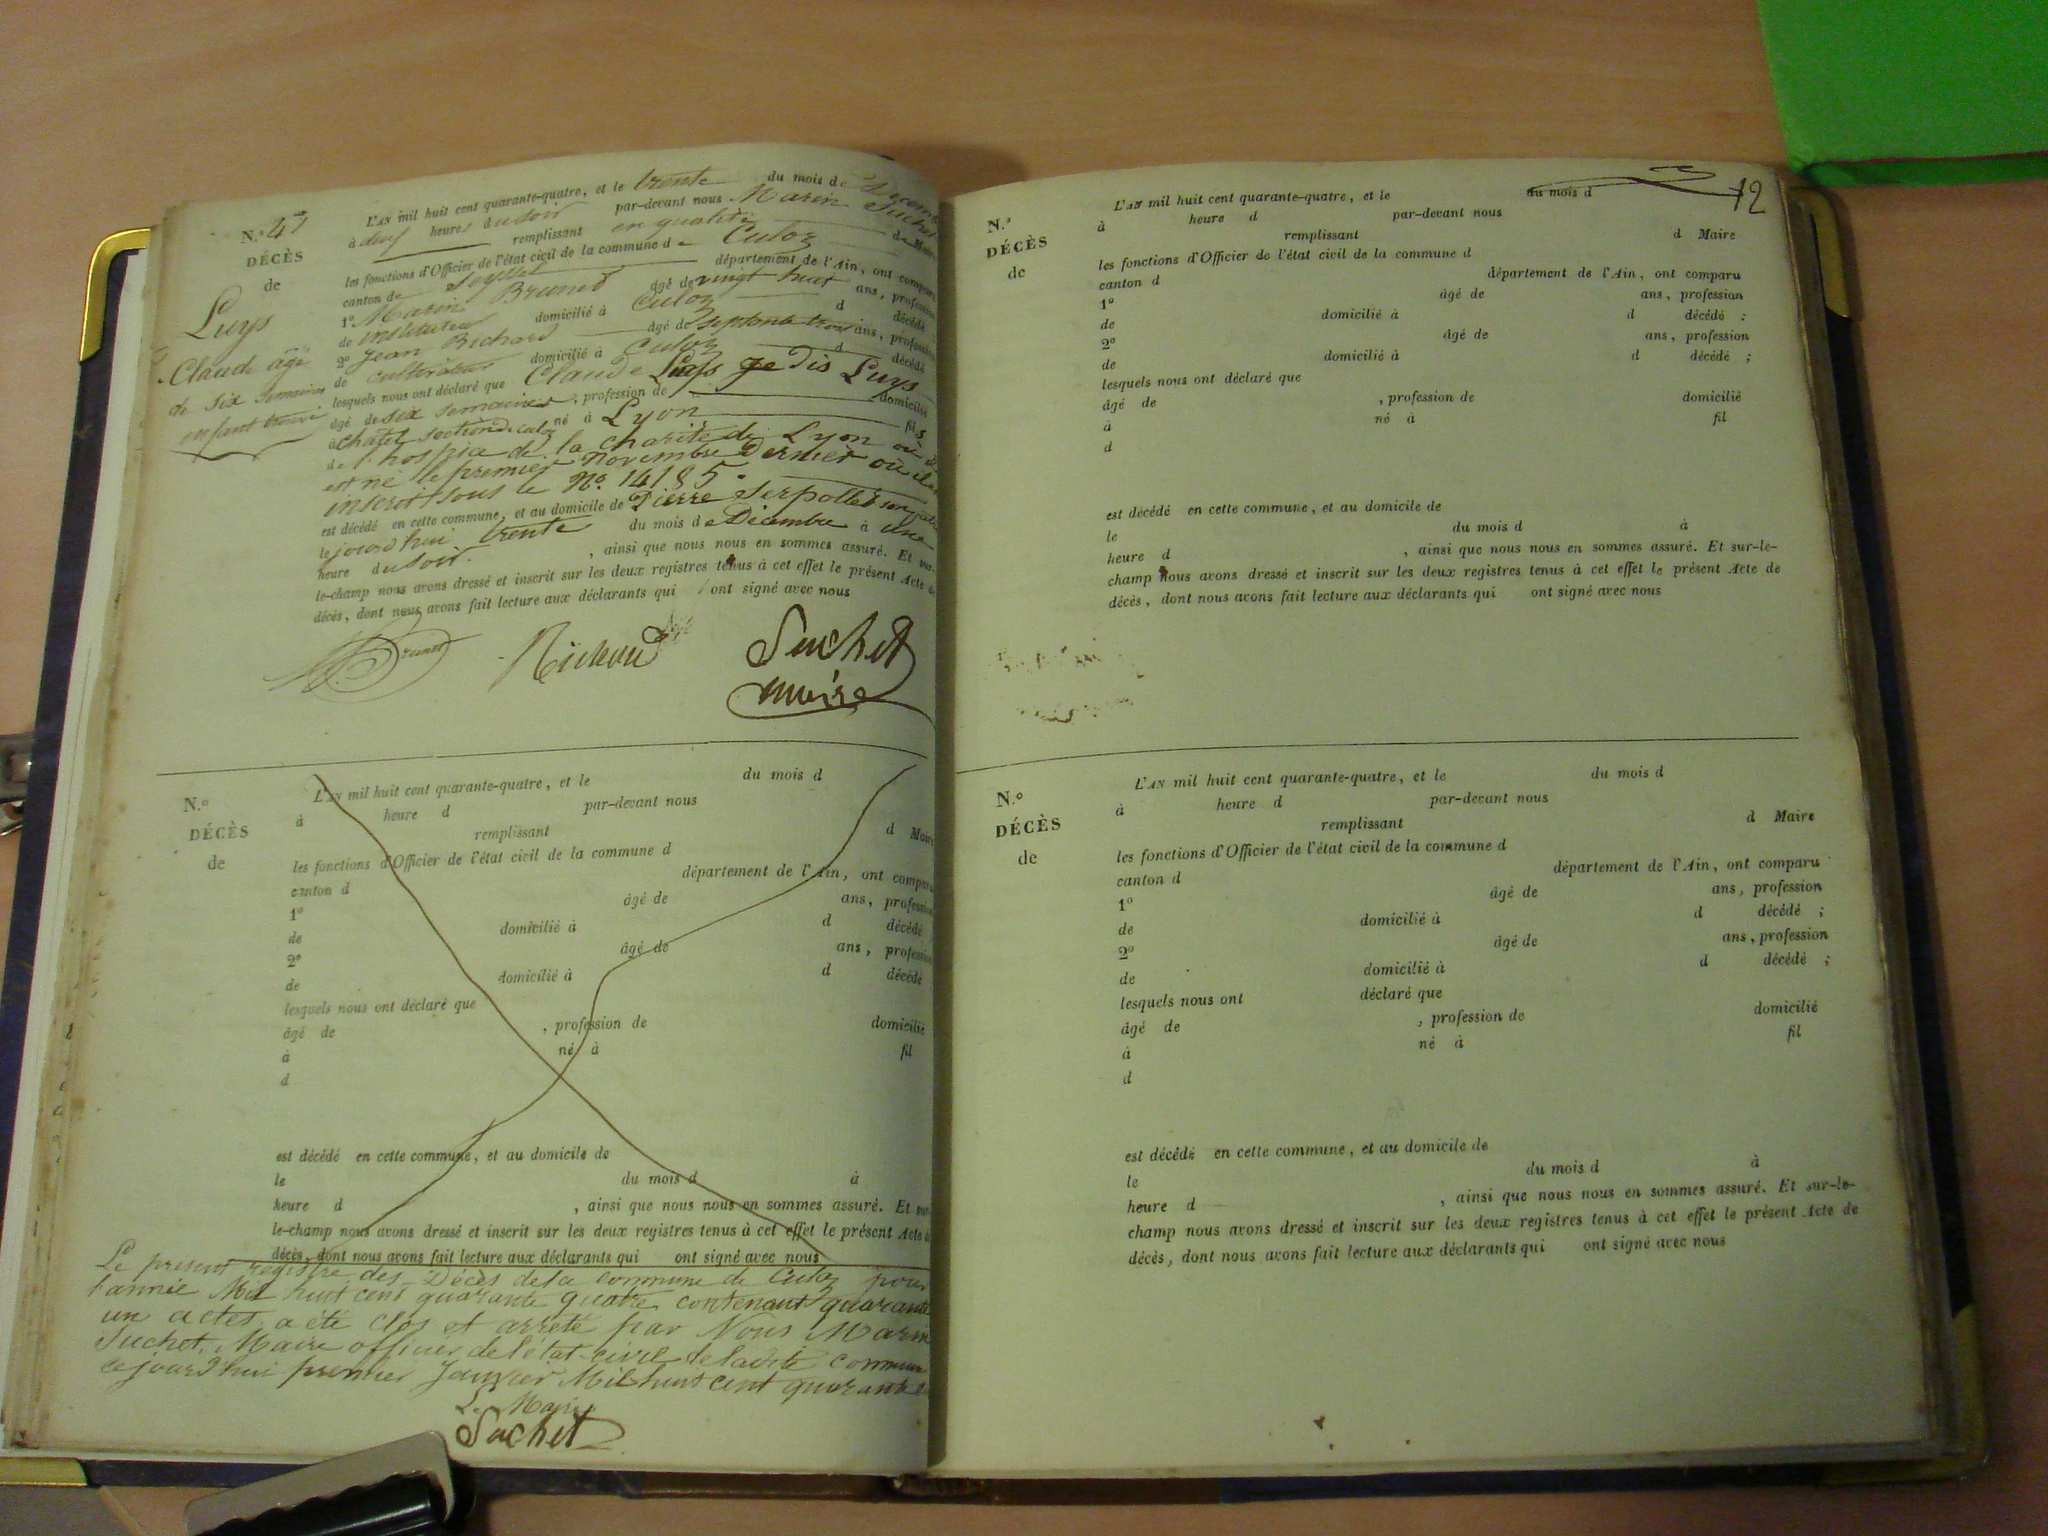 N.º 41
DÉCÈS
de
Luys
Claude âgé
de six semaines
enfant trouvé
L'AN mil huit cent quarante-quatre, et le trente du mois de Décemb
à deux heures du soir par-devant nous Marin Suchet
remplissant en qualité de Maire
les fonctions d'Officier de l'état civil de la commune de Culoz
canton de Seyssel département de l'Ain, ont comparu
1º Marin Brunet âgé de vingt huit ans, profession
de instituteur domicilié à Culoz d décédé
2º Jean Richard âgé de septante trois ans, profession
de cultivateur domicilié à Culoz d décédé
lesquels nous ont déclaré que Claude Luys je dis Luys
âgé de six semaines, profession de domicilié
à Chatel section de Culoz né à Lyon fils
de l'hospice de la charité de Lyon où il
est né le premier novembre dernier où il est
inscrit sous le Nº 14185.
est décédé en cette commune, et au domicile de Pierre Serpollet son
le jourd'hui trente du mois de Décembre à une
heure du soir. , ainsi que nous nous en sommes assuré. Et sur-
le-champ nous avons dressé et inscrit sur les deux registres tenus à cet effet le présent Acte de
décès, dont nous avons fait lecture aux déclarants qui ont signé avec nous
Brunet Richard Suchet
maire
N.º
DÉCÈS
de
L'AN mil huit cent quarante-quatre, et le du mois d
à heure d par-devant nous
remplissant d Maire
les fonctions d'Officier de l'état civil de la commune d
canton d département de l'Ain, ont comparu
1º âgé de ans, profession
de domicilié à d décédé
2º âgé de ans, profession
de domicilié à d décédé
lesquels nous ont déclaré que
âgé de , profession de domicilié
à né à fil
d
est décédé en cette commune, et au domicile de
le du mois d à
heure d , ainsi que nous nous en sommes assuré. Et sur-
le-champ nous avons dressé et inscrit sur les deux registres tenus à cet effet le présent Acte d
décès, dont nous avons fait lecture aux déclarants qui ont signé avec nous
Le present registre des Décès de la commune de Culoz pour
l'année Mil huit cent quarante quatre contenant quarante
un actes, a été clos et arrêté par Nous Marin
Suchet, Maire officier de l'état-civil de ladite commune
ce jourd'hui premier Janvier Mil huit cent quarante
Le Maire
Suchet
12
N.º
DÉCÈS
de
L'AN mil huit cent quarante-quatre, et le du mois d
à heure d par-devant nous
remplissant d Maire
les fonctions d'Officier de l'état civil de la commune d
canton d département de l'Ain, ont comparu
1º âgé de ans, profession
de domicilié à d décédé ;
2º âgé de ans, profession
de domicilié à d décédé ;
lesquels nous ont déclaré que
âgé de , profession de domicilié
à né à fil
d
est décédé en cette commune, et au domicile de
le du mois d à
heure d , ainsi que nous nous en sommes assuré. Et sur-le-
champ nous avons dressé et inscrit sur les deux registres tenus à cet effet le présent Acte de
décès, dont nous avons fait lecture aux déclarants qui ont signé avec nous
N.º
DÉCÈS
de
L'AN mil huit cent quarante-quatre, et le du mois d
à heure d par-devant nous
remplissant d Maire
les fonctions d'Officier de l'état civil de la commune d
canton d département de l'Ain, ont comparu
1º âgé de ans, profession
de domicilié à d décédé ;
2º âgé de ans, profession
de domicilié à d décédé ;
lesquels nous ont déclaré que
âgé de , profession de domicilié
à né à fil
d
est décédé en cette commune, et au domicile de
le du mois d à
heure d , ainsi que nous nous en sommes assuré. Et sur-le-
champ nous avons dressé et inscrit sur les deux registres tenus à cet effet le présent Acte de
décès, dont nous avons fait lecture aux déclarants qui ont signé avec nous